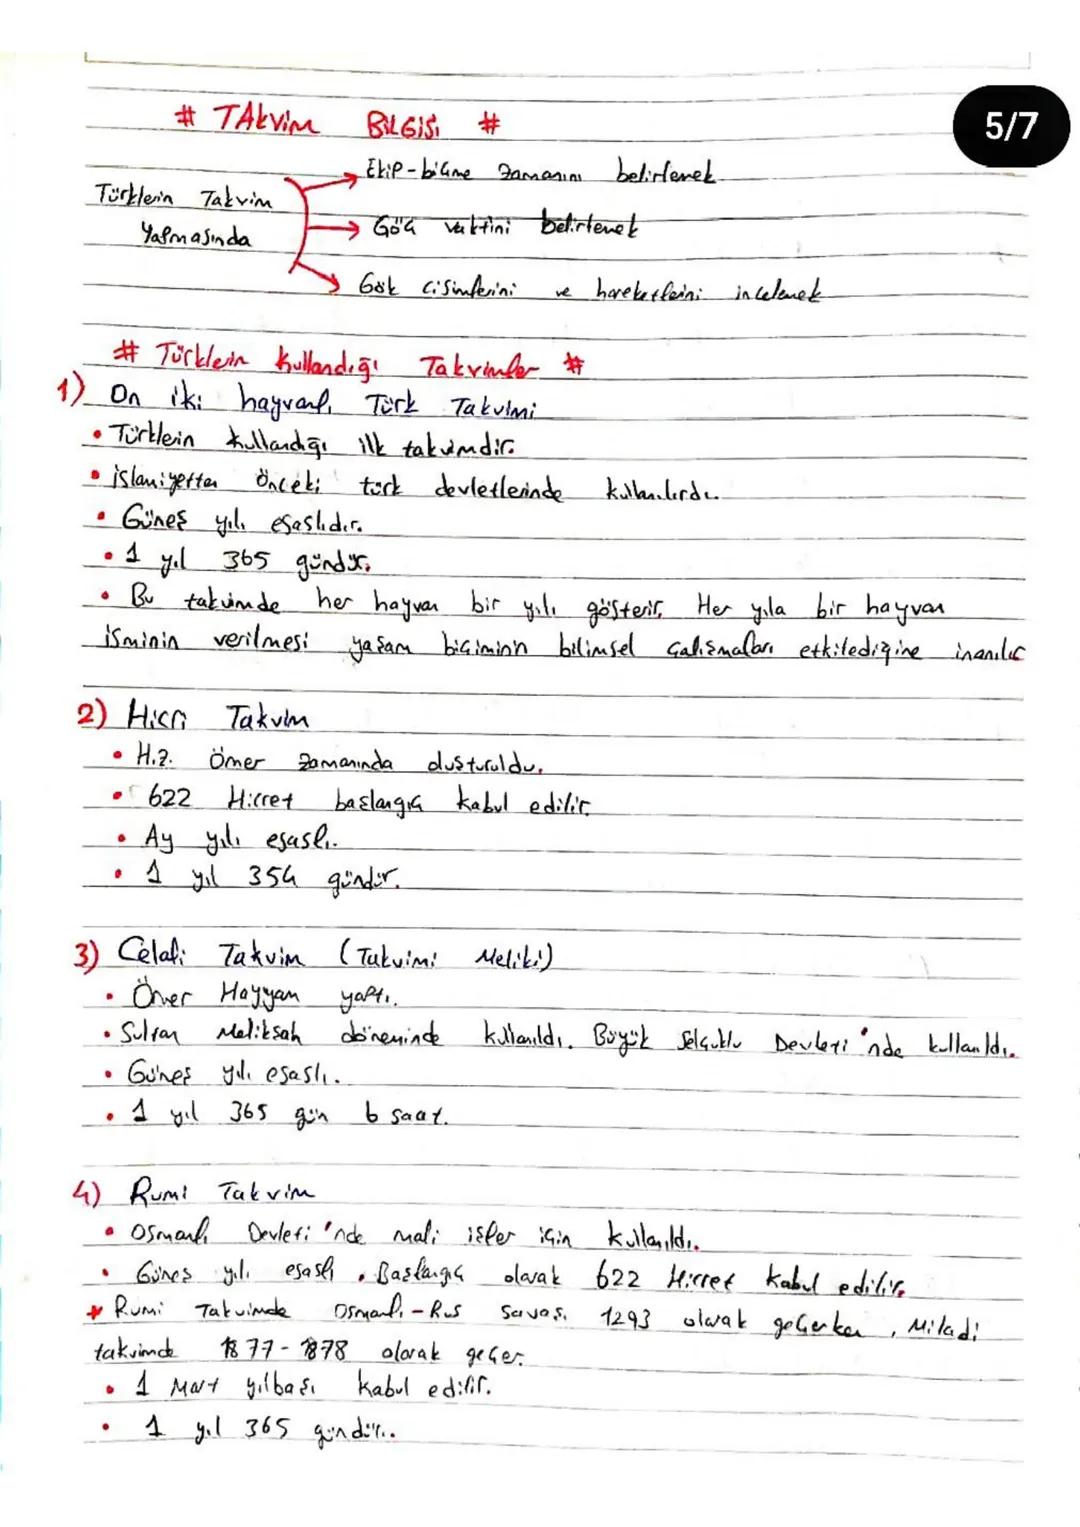 # TAkvim BİLGİSİ #
5/7
Ekip-biçme zamanını belirlemek
Türklerin Takvim
Yapmasında
Göç vaktini belirlemek
Gök cisimlerini ve hareketlerini incelemek
# Türklerin Kullandığı Takvimler #
1) On iki hayvanlı Türk Takvimi
• Türklerin kullandığı ilk takvimdir.
• İslamiyetten Önceki türk devletlerinde kullanılırdı.
• Güneş yılı esaslıdır.
• 1 yıl 365 gündür.
• Bu takvimde her hayvan bir yılı gösterir. Her yıla bir hayvan
isminin verilmesi yaşam biçiminin bilimsel çalışmaları etkilediğine inanılır
2) Hicri Takvim
• H.z. Ömer zamanında oluşturuldu.
• 622 Hicret başlangıç kabul edilir.
• Ay yılı esaslı.
• 1 yıl 354 gündür.
3) Celali Takvim (Takvimi Meliki)
• Ömer Hayyam yaptı.
• Sultan Melikşah döneminde kullanıldı. Büyük Selçuklu Devleti'nde kullanıldı.
• Güneş yılı esaslı.
• 1 yıl 365 gün 6 saat.
4) Rumi Takvim
• Osmanlı Devleti'nde mali işler için kullanıldı.
• Güneş yılı esaslı. Başlangıç olarak 622 Hicret kabul edilir.
* Rumi Takvimde Osmanlı-Rus savaşı 1293 olarak geçerken, Miladi
takvimde 1877-1878 olarak geçer.
• 1 Mart yılbaşı kabul edilir.
• 1 yıl 365 gündür.